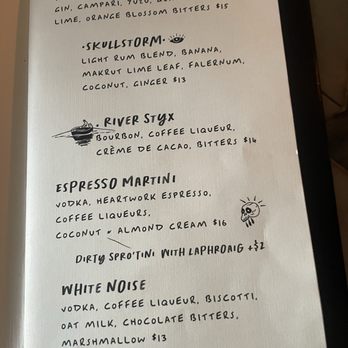 GIN, CAMPARI, YUZU,
LIME, ORANGE BLOSSOM BITTERS $15
·SKULLSTORM·
LIGHT RUM BLEND, BANANA,
MAKRUT LIME LEAF, FALERNUM,
COCONUT, GINGER $13
· RIVER STYX
BOURBON, COFFEE LIQUEUR,
CRÈME DE CACAO, BITTERS $14
ESPRESSO MARTINI
VODKA, HEARTWORK ESPRESSO,
COFFEE LIQUEURS,
COCONUT + ALMOND CREAM $16
DIRTY SPRO'TINI WITH LAPHROAIG +$2
WHITE NOISE
VODKA, COFFEE LIQUEUR, BISCOTTI,
OAT MILK, CHOCOLATE BITTERS,
MARSHMALLOW $13